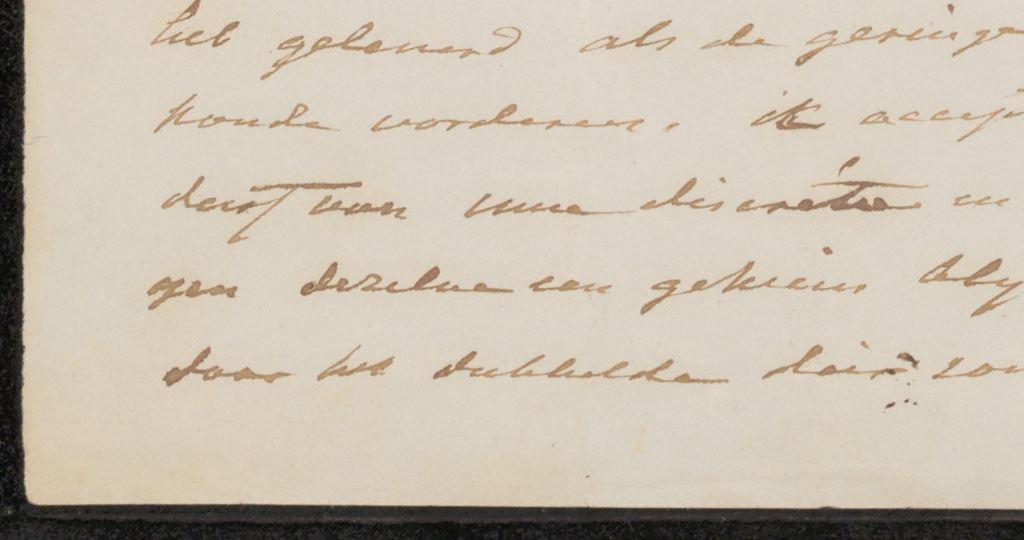 het geleverd als de geringe
konde vorderen. ik accep
derf van uwe discrétie en
gen dezelve een geheim bly
daar het dubbelde dair zou